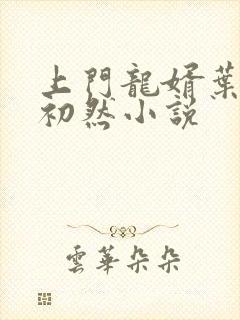 上門龍婿葉
初然小説
雲華朵朵